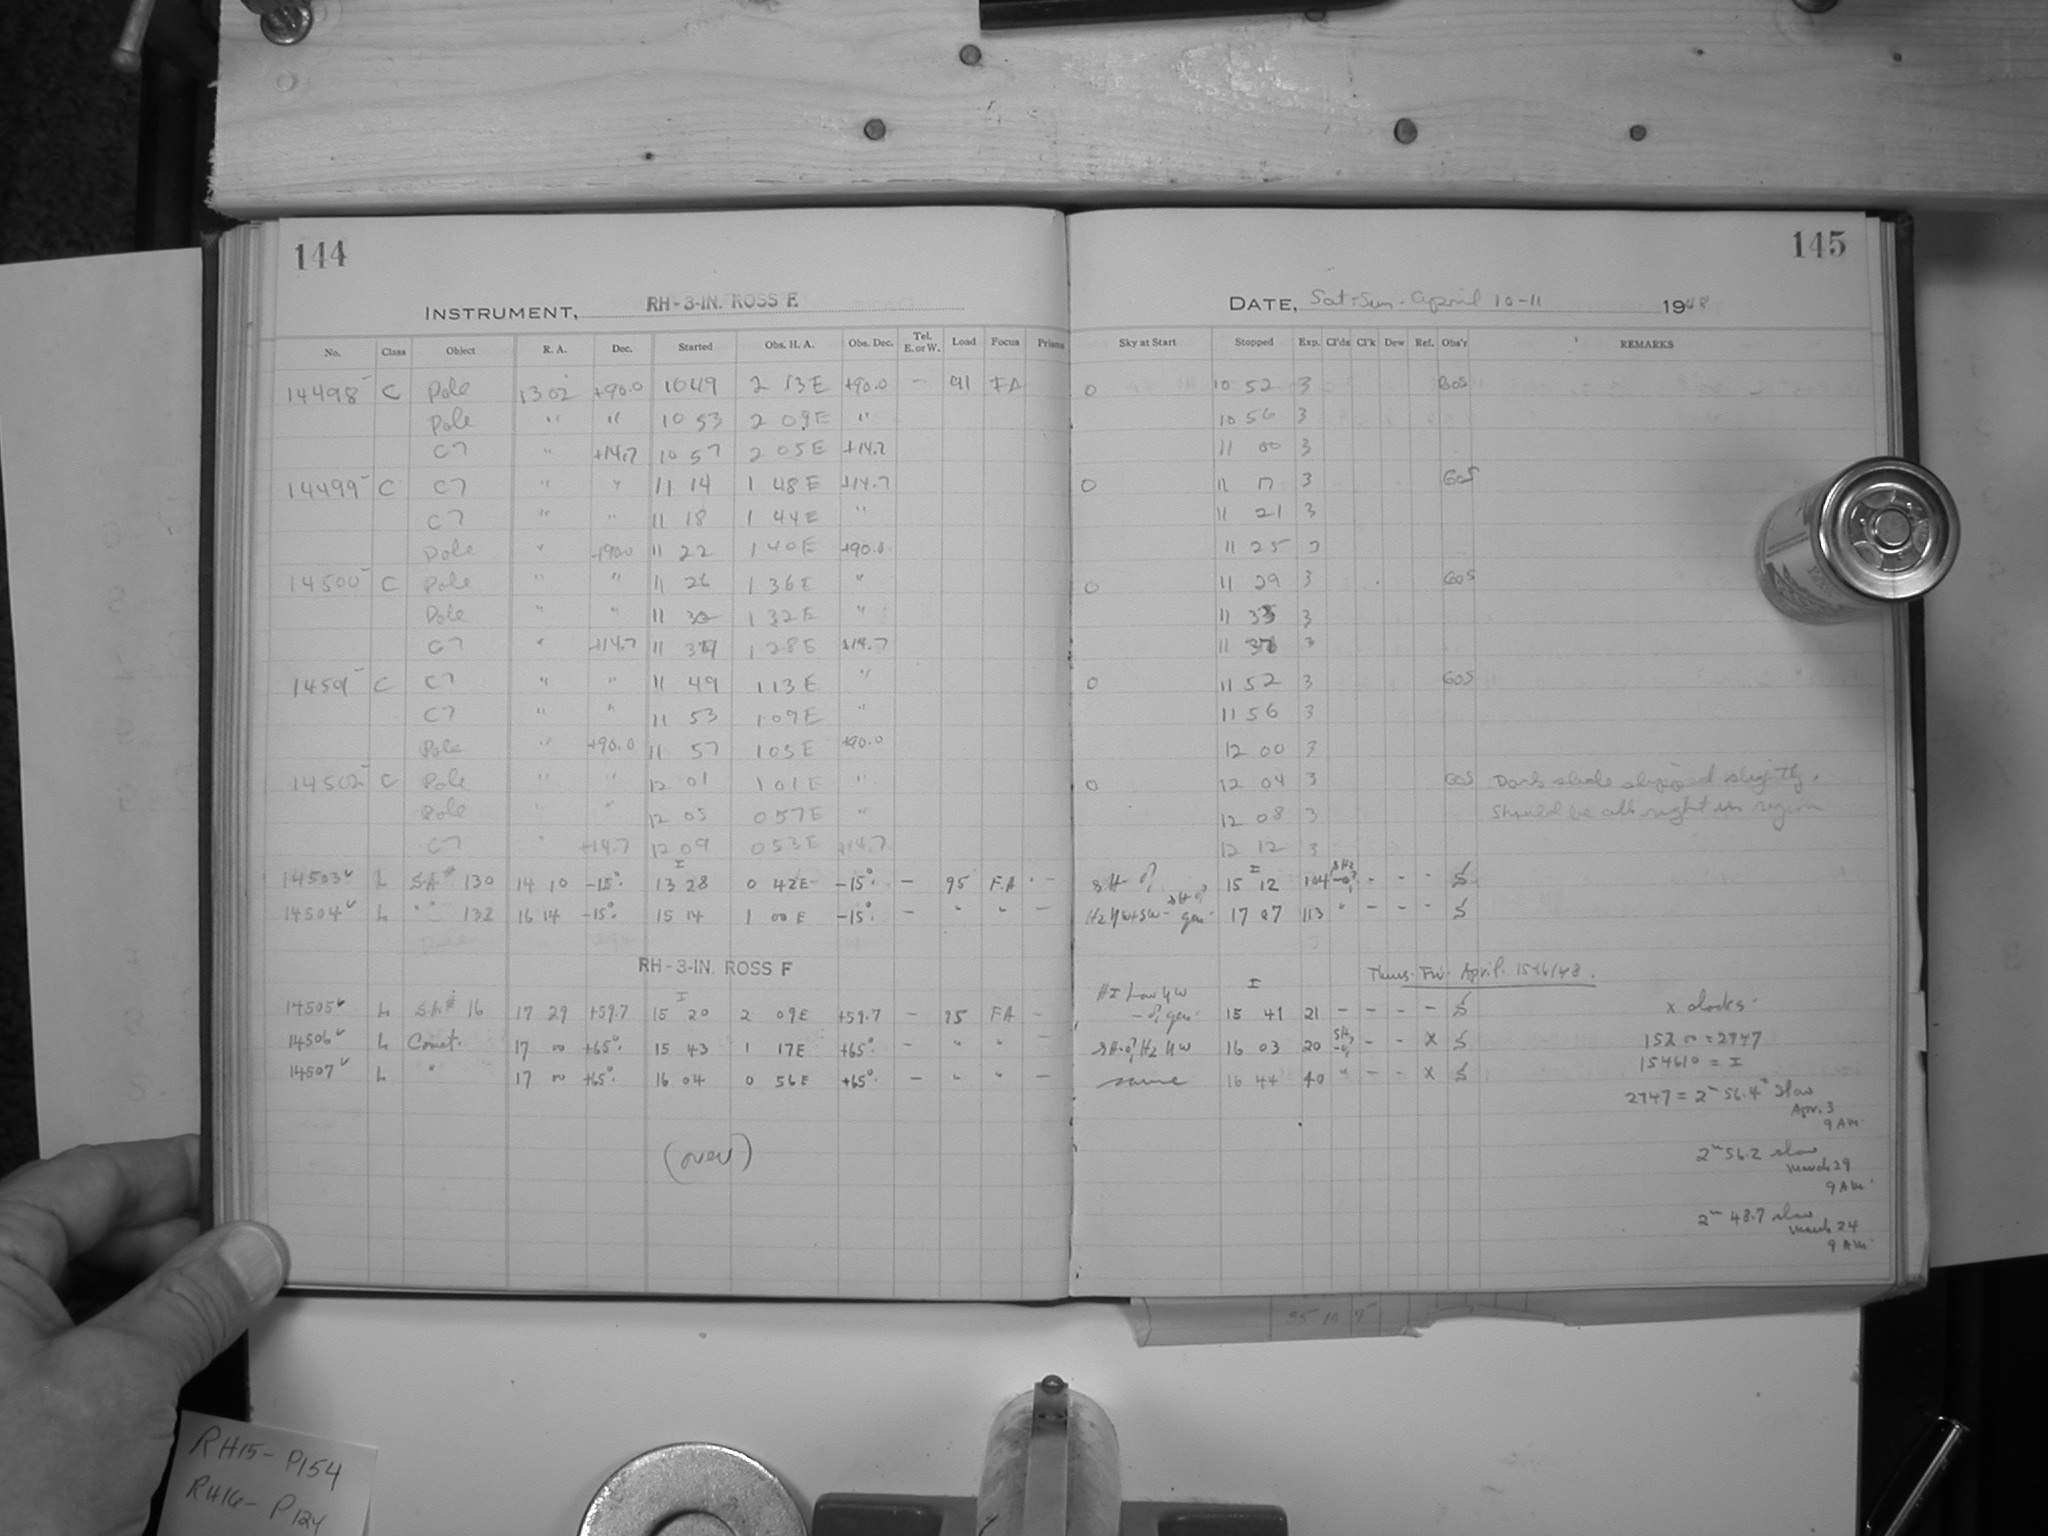 144
INSTRUMENT, RH-3-IN. ROSS E
No. Class Object R. A. Dec. Started Obs. H. A. Obs. Dec. Tel. E. or W. Load Focus Prisms
14498 C Pole 13 02 +90.0 10 49 2 13 E +90.0 - 91 FA
Pole " " 10 53 2 09 E "
C7 " +14.7 10 57 2 05 E +14.7
14499 C C7 " " 11 14 1 48 E +14.7
C7 " " 11 18 1 44 E "
Pole " +90.0 11 22 1 40 E +90.0
14500 C Pole " " 11 26 1 36 E "
Pole " " 11 30 1 32 E "
C7 " +14.7 11 34 1 28 E +14.7
14501 C C7 " " 11 49 1 13 E "
C7 " " 11 53 1 09 E "
Pole " +90.0 11 57 1 05 E +90.0
14502 C Pole " " 12 01 1 01 E "
Pole " " 12 05 0 57 E "
C7 " +14.7 12 09 0 53 E +14.7
14503 L SA# 130 14 10 -15°. I 13 28 0 42 E -15°. - 95 FA -
14504 L " " 132 16 14 -15°. 15 14 1 00 E -15°. - " " -
RH-3-IN. ROSS F
14505 L SA# 16 17 29 +59.7 I 15 20 2 09 E +59.7 - 95 FA -
14506 L Comet. 17 00 +65°. 15 43 1 17 E +65°. - " " -
14507 L " 17 00 +65°. 16 04 0 56 E +65°. - " " -
(over)
145
DATE, Sat-Sun-April 10-11 1948
Sky at Start Stopped Exp. Cl'ds Cl'k Dew Ref. Obs'r REMARKS
0 10 52 3 GOS
10 56 3
11 00 3
0 11 17 3 GOS
11 21 3
11 25 3
0 11 29 3 GOS
11 33 3
11 37 3
0 11 52 3 GOS
11 56 3
12 00 3
0 12 04 3 GOS Dark slide slipped slightly.
12 08 3 Should be all right in region
12 12 3
I 15 12 104 - - -
17 07 113 " - - -
Thurs. Fri. April. 15-16/48.
HI Low NW I
15 41 21 - - - - x clocks.
16 03 20 - - X 152 00 = 2747
154610 = I
same 16 44 40 " - - X
2747 = 2m 56.4s slow
Apr. 3
9 AM.
2m 56.2 slow
March 29
9 AM.
2m 43.7 slow
March 24
9 AM.
35 10 7
RH15- P154
RH16- P124